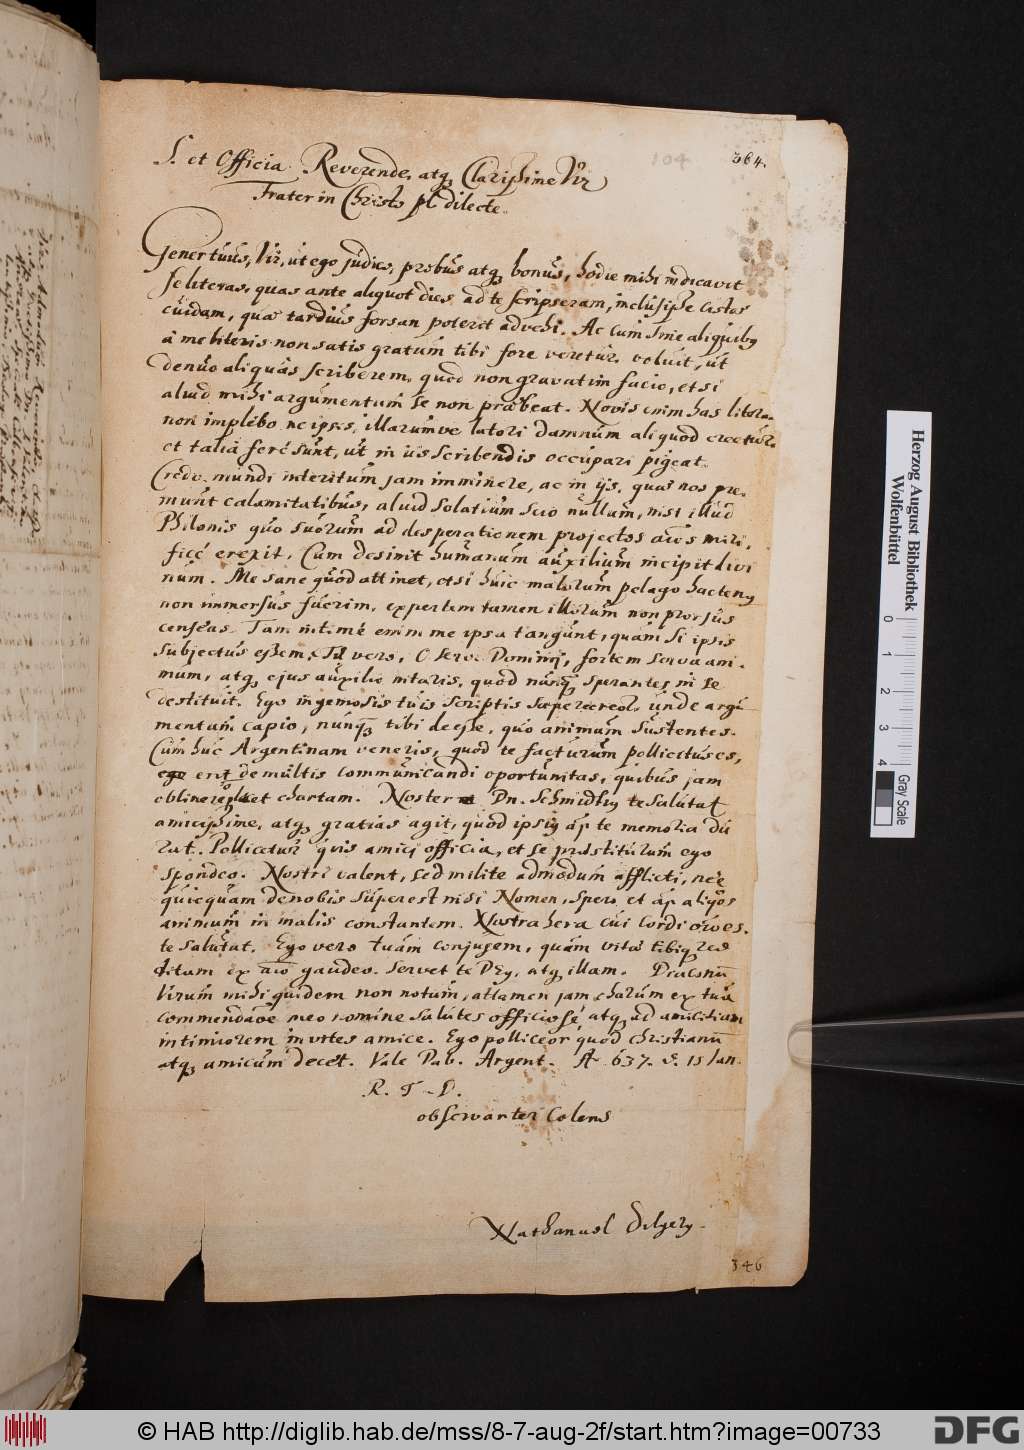 364.
104
S. et Officia. Reverende, atq; Clarissime Vir
Frater in Christo pl. dilecte.
Gener tuus, Vir, ut ego judico, probus atq; bonus, hodie mihi indicavit
se literas, quas ante aliquot dies ad te scripseram, inclusisse cistae
cuidam, quae tardius forsan poterit advehi. Ac cum sine aliquib9
à me literis non satis gratum tibi fore veretur, voluit, ut
denuo aliquas scriberem, quod non gravatim facio, etsi
aliud mihi argumentum se non praebeat. Novis enim has literas
non implebo ne ipsis, illarumve latori damnum aliquod creetur.
et talia ferè sunt, ut in iis scribendis occupari pigeat.
Credo mundi interitum jam imminere, ac in ijs, quae nos pre-
munt calamitatibus, aliud solatium scio nullum, nisi illud
Philonis quo suorum ad desperationem projectos aîos miri-
ficè erexit. Cum desinit humanum auxilium incipit divi
num. Me sane quod attinet, etsi huic malorum pelago hacten9
non immersus fuerim, expertem tamen illorum non prorsus
censeas. Tam intimè enim me ipsa tangunt, quàm si ipsis
subjectus essem. Tu vero, O serve Domini, fortem serva ani-
mum, atq; ejus auxilio nitaris, quod nunq; sperantes in se
destituit. Ego ingeniosis tuis scriptis saepe recreor, unde argu
mentum capio, nunq; tibi deesse, quo animum sustentes.
Cum huc Argentinam veneris, quod te facturum pollicitus es,
erit de multis communicandi oportunitas, quibus jam
oblinere chartam. Noster Dn. Schmidi9 te salutat
amicissime, atq; gratias agit, quod ipsi9 ap te memoria du
rat. Pollicetur quis amici officia, et se praestiturum ego
spondeo. Nostri valent, sed milite admodum afflicti, nec
quicquam de nobis superest nisi Nomen, spero et ap aliquos
animum in malis constantem. Nostra hera cui cordi
te salutat. Ego vero tuam conjugem, quam vitae tibiq; red
ditam ex aîo gaudeo. Servet te DEus, atq; illam.
Virum mihi quidem non notum, attamen jam charum ex tua
commendaõe meo nomine salutes officiosè, atq; ad amicitiam
intimiorem invites amice. Ego polliceor quod Christianum
atq; amicum decet. Vale Dab. Argent. A 637. d. 15 Jan.
R. T. D.
observanter colens
Nathanael Dilgerg.
346
Herzog August Bibliothek
Wolfenbüttel
0 1 2 3 4
Gray Scale
© HAB http://diglib.hab.de/mss/8-7-aug-2f/start.htm?image=00733
DFG